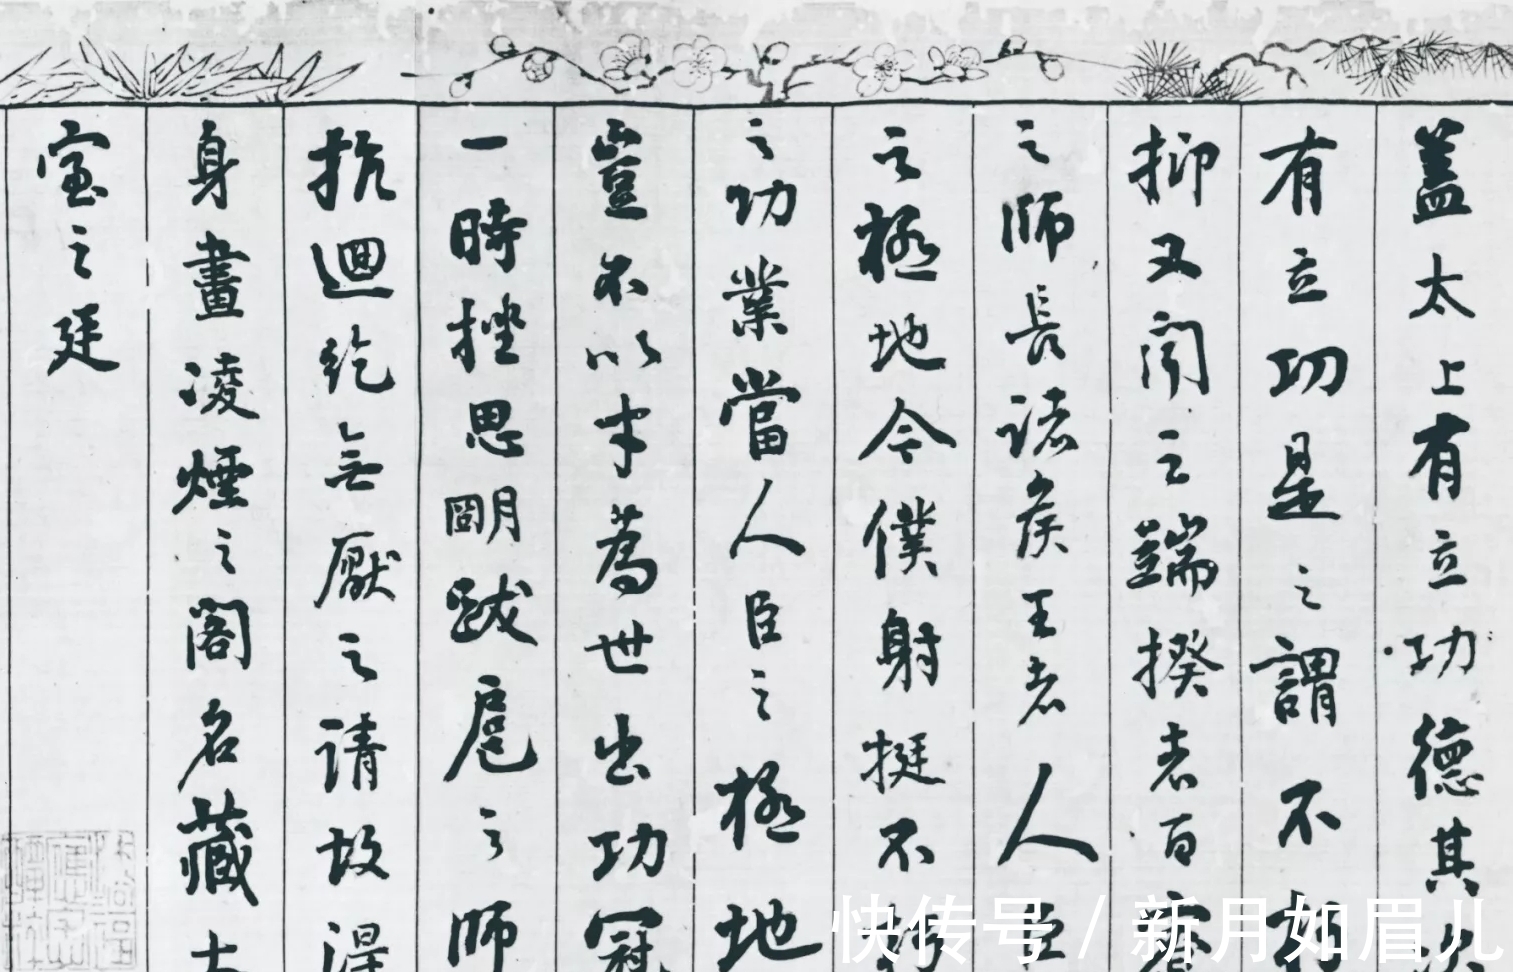 蓋太上有立功德其次
有立功是之謂不朽
抑又聞之端揆者百寮
之師長諸侯王者人臣
之極地今僕射挺不朽
之功業當人臣之極地
豈不以才為世出功冠
一時挫思朙跋扈之師
抗迴紇無厭之請故得
身畫凌煙之閣名藏太
室之廷
快传号 / 新月如眉儿